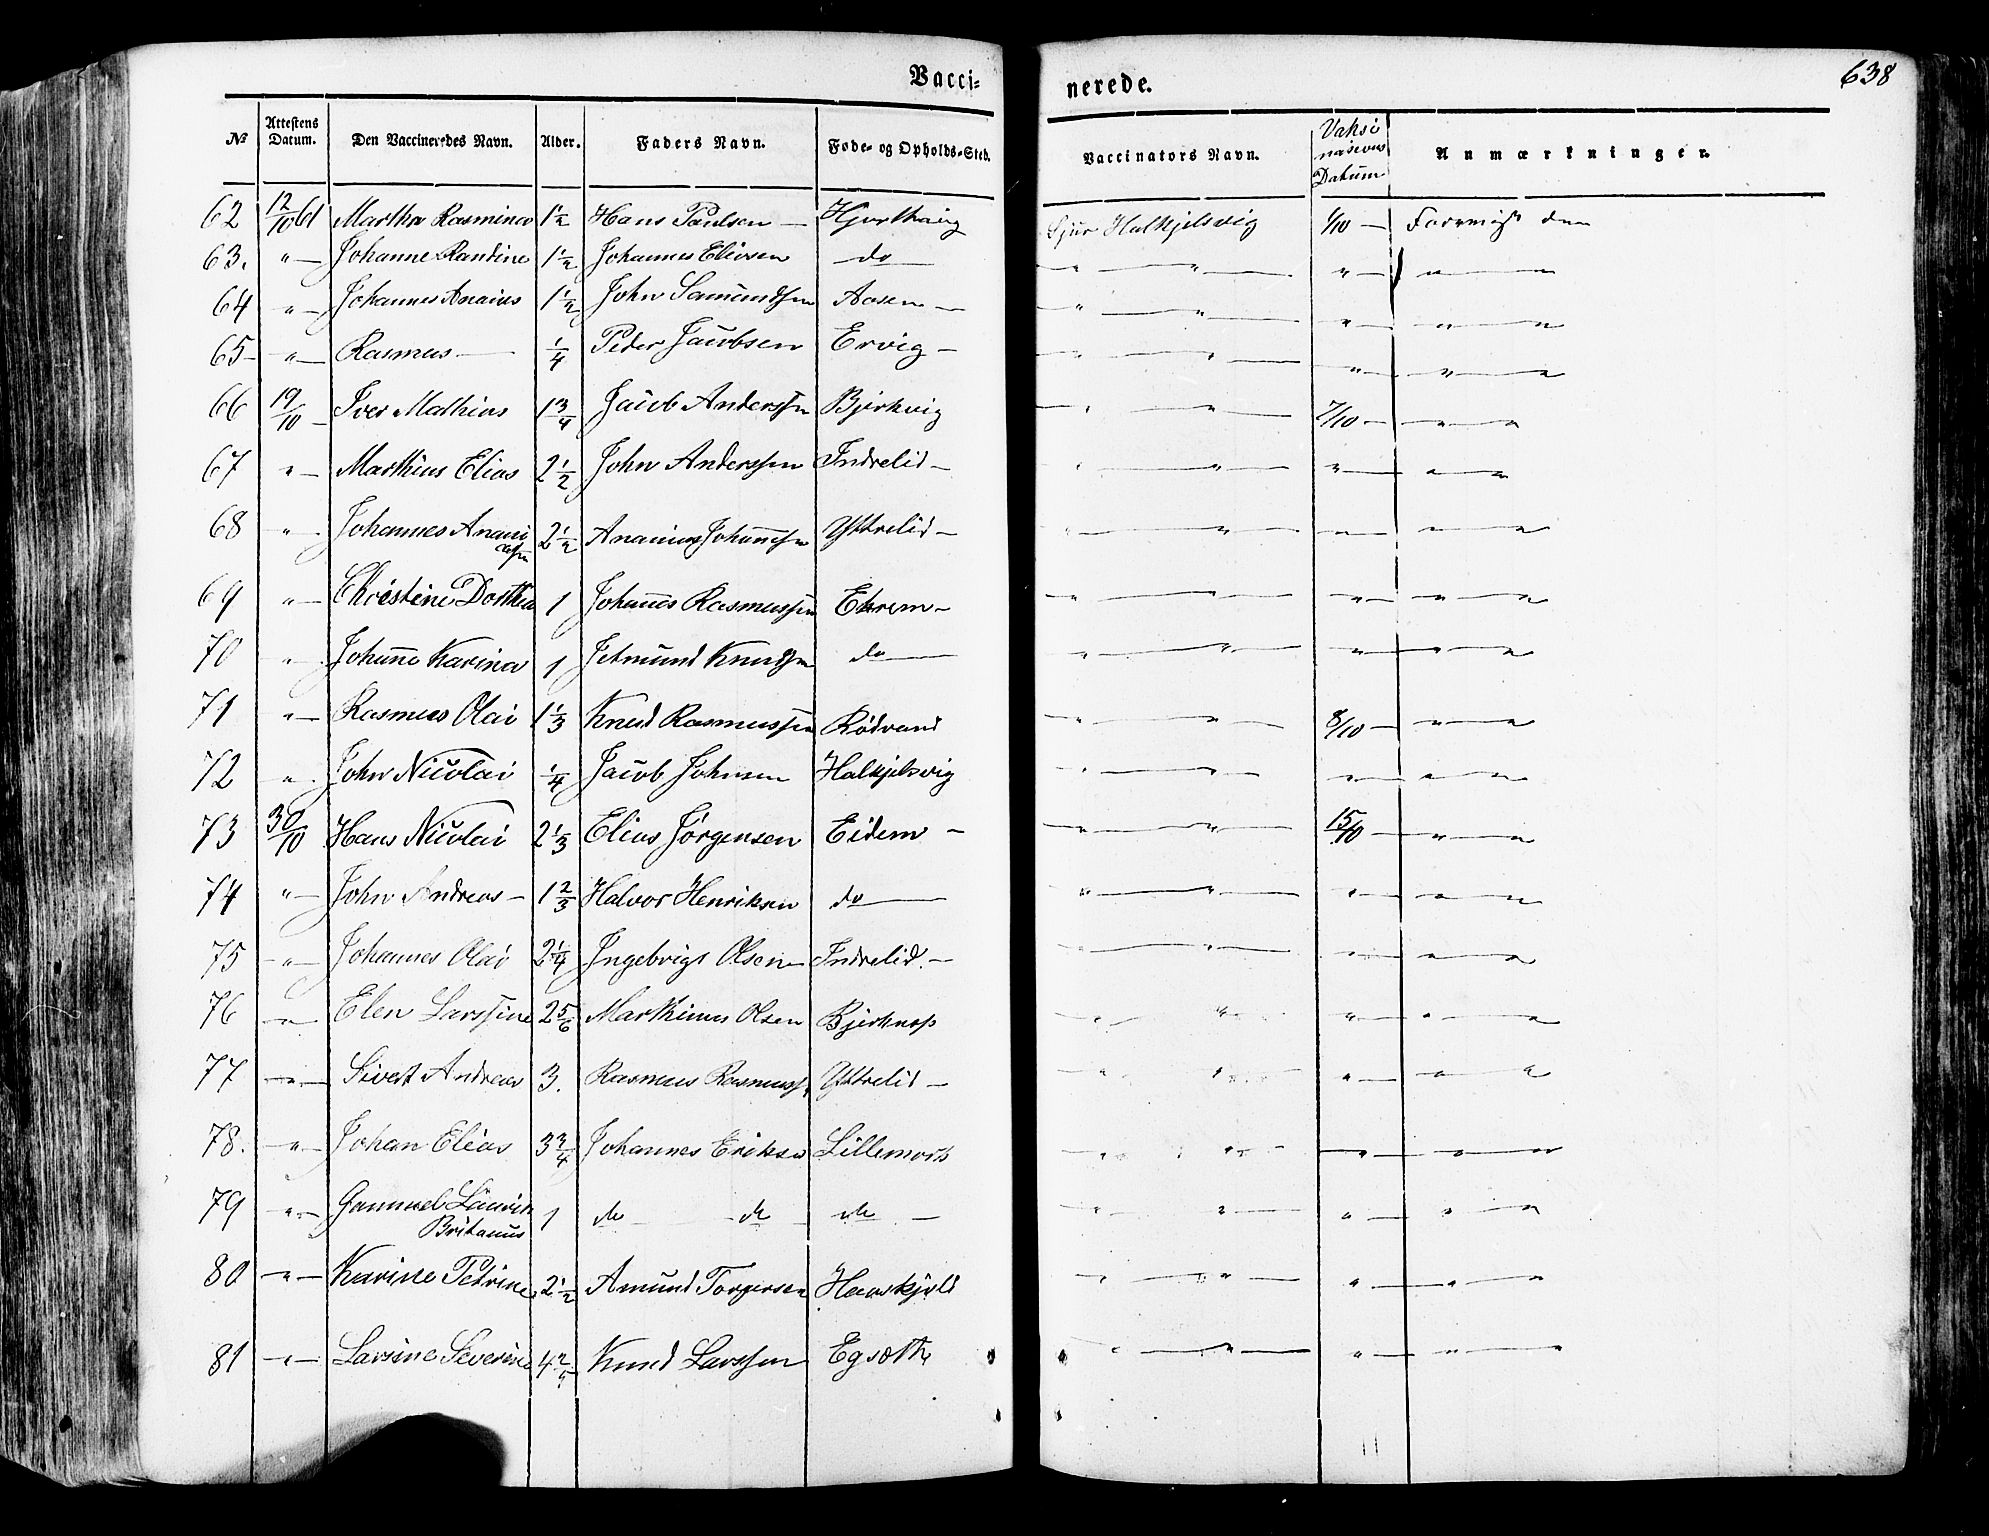 Vacci-
nerede.
638
№ Attestens Datum. Den Vaccineredes Navn. Alder. Faders Navn. Føde- og Opholds-Sted. Vaccinators Navn. Vaksi nasions Datum Anmærkninger.
62 12/10 61 Martha Rasmine 1 1/2 Hans Poulsen — Hjorthaug Sjur Halkjelsvig 1/10 —
63. " — Johanne Randine 1 1/2 Johannes Eliesen do — " " — " — " — " —
64 " — Johannes Ananias 1 1/2 John Samundsen Aasen — " " — " — " — " —
65 — " — Rasmus — 1/4 Peder Jacobsen Ervig — " " — " — " — " —
66 19/10 — Iver Mathias 1 3/4 Jacob Anderssen Bjørkvig " " — 7/10 — " — " —
67 " — Marthius Elias 2 1/2 John Anderssen Indrelid — " " — " — " — " —
68 " — Johannes Anani assen 2 1/2 Ananias Johannssen Yttrelid — " " — " — " — " —
69 " — Christine Dorthea 1 Johanes Rasmussen Ekrem — " " — " — " — " —
70 " — Johanne Karina 1 Jetmund Knudsen do — " " — " — " — " —
71 " — Rasmus Olai 1 1/3 Knud Rasmussen Rødvand " " — 8/10 — " — " —
72 " . John Nicolai 1/4 Jacob Johnsen Halkjelsvig " " — " — " — " —
73 30/10 Hans Nicolai 2 1/3 Elias Jørgensen Eidem — " " — 15/10 — " — " —
74 " — John Andreas — 1 2/3 Halvor Henriksen do — " " — " — " — " —
75 — " — Johannes Olai 2 1/4 Ingebrigt Olsen Indrelid. — " " — " — " — " —
76 — " — Elen Larssine 2 5/6 Marthinus Olsen Bjørknes " " — " — " — " —
77 — " — Sivert Andreas 3. Rasmus Rasmuss. Yttrelid — " " — " — " — "
78. — " — Johan Elias 3 3/4 Johannes Eriksen Lillemork " " — " — " — " —
79 — " — Gammel Laurits Britanus 1 do — do — do — " " — " — " — " —
80 — " — Karine Petrine 2 1/2 Amund Torgersen Haaskjold " " — " — " — " —
81 — " — Larsine Severine 4 2/4 Knud Larssen Egsæth " " — " — " — " —